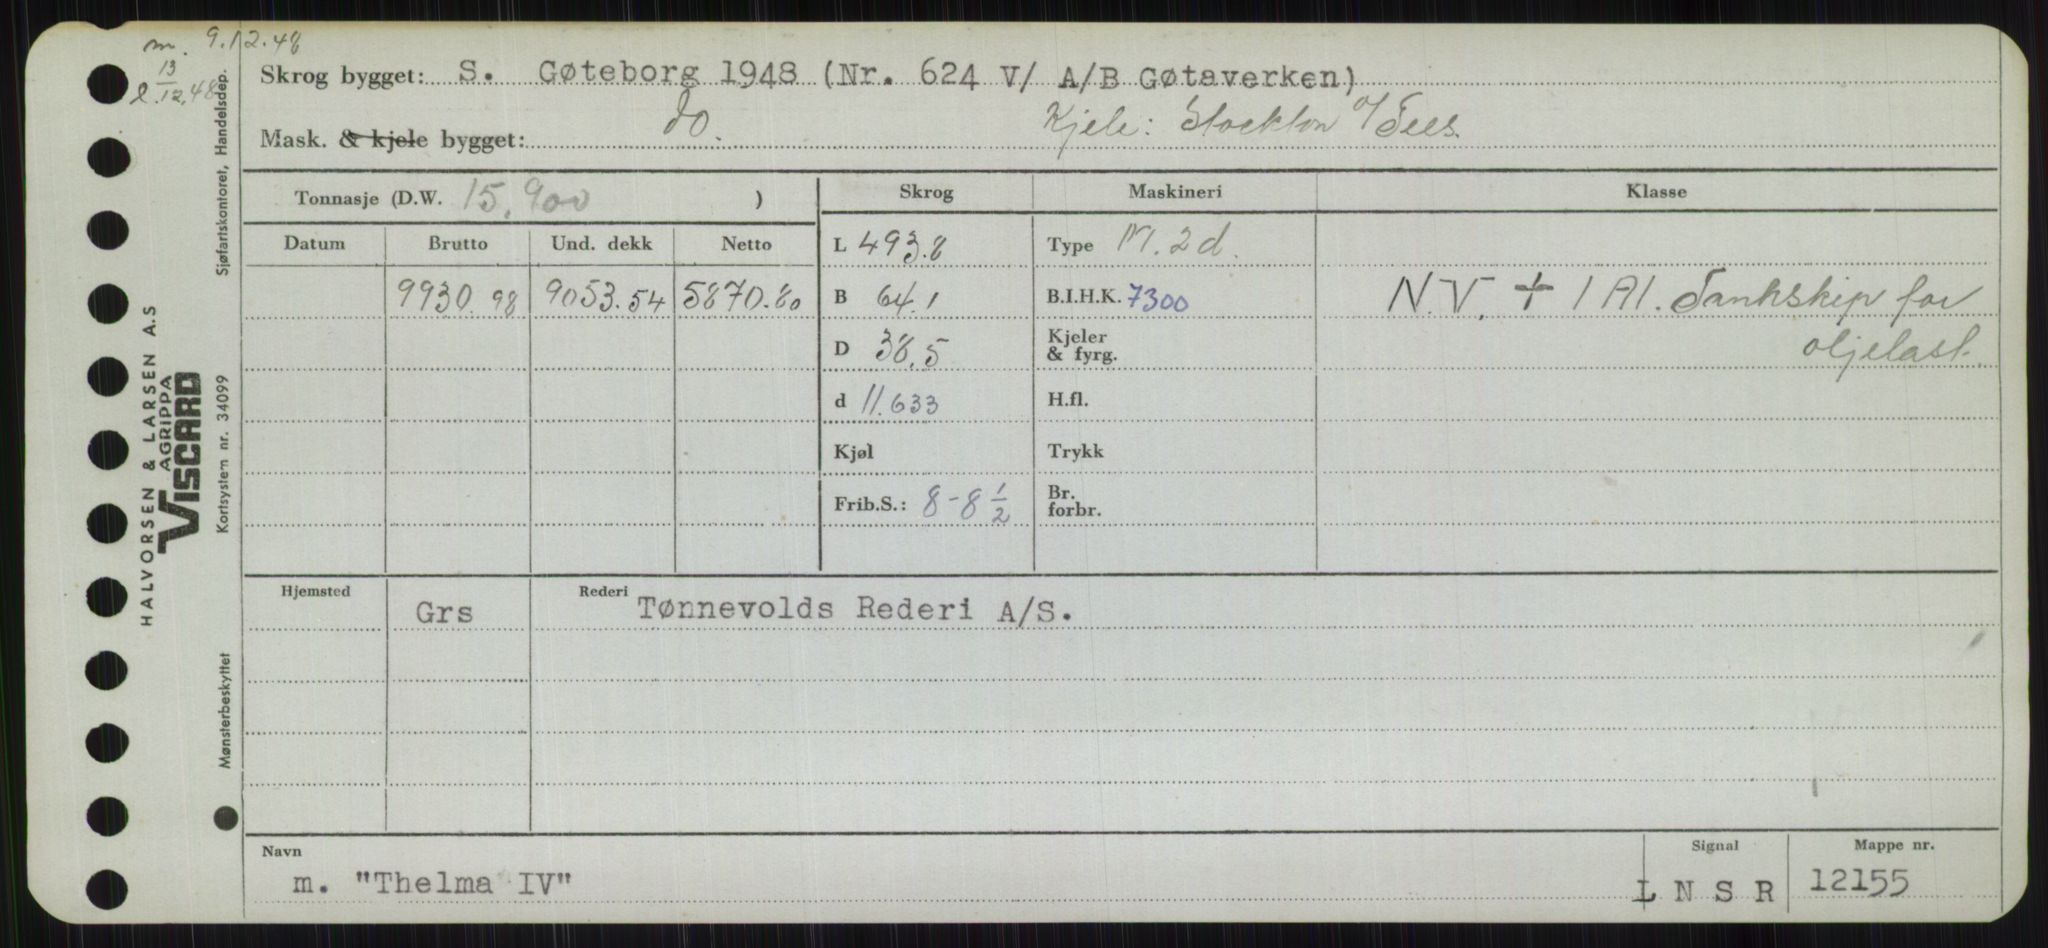 m. 9.12.48
l. 13/12.48
Skrog bygget: S. Gøteborg 1948 (Nr. 624 V/ A/B Gøtaverken)
Mask. & kjele bygget: do. Kjele: Stockton o/Tees.
Tonnasje (D.W. 15.900 )
Datum Brutto Und. dekk Netto
9930.98 9053.54 5870.80
Skrog Maskineri Klasse
L 493.8 Type M. 2 d.
B 64.1 B.I.H.K. 7300 N.V. + 1 A1. Tankskip for
D 38.5 Kjeler & fyrg. oljelast.
d 11.633 H.fl.
Kjøl Trykk
Frib.S.: 8-8 1/2 Br. forbr.
Hjemsted Grs Rederi Tønnevolds Rederi A/S.
Navn Signal Mappe nr.
m. "Thelma IV" L N S R 12155
Sjøfartskontoret, Handelsdep.
HALVORSEN & LARSEN A.S
AGRIPPA
VISCARD
Kortsystem nr. 34099
Mønsterbeskyttet